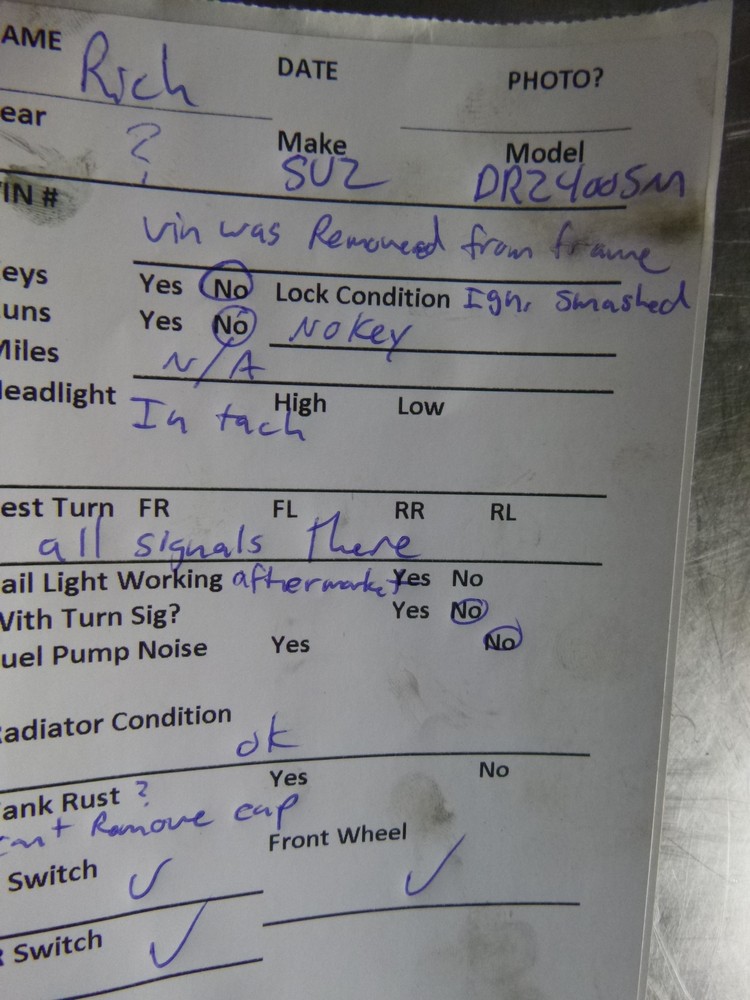 AME Rich DATE PHOTO?
ear ? Make SUZ Model DRZ400SM
IN # Vin was Removed from frame
eys Yes No Lock Condition Ign. Smashed
uns Yes No No Key
Miles N/A
eadlight In tach High Low
est Turn FR FL RR RL
all signals there
ail Light Working aftermarket Yes No
With Turn Sig? Yes No
uel Pump Noise Yes No
adiator Condition ok
ank Rust ? Yes No
Can't Remove cap
Switch ✓ Front Wheel ✓
R Switch ✓